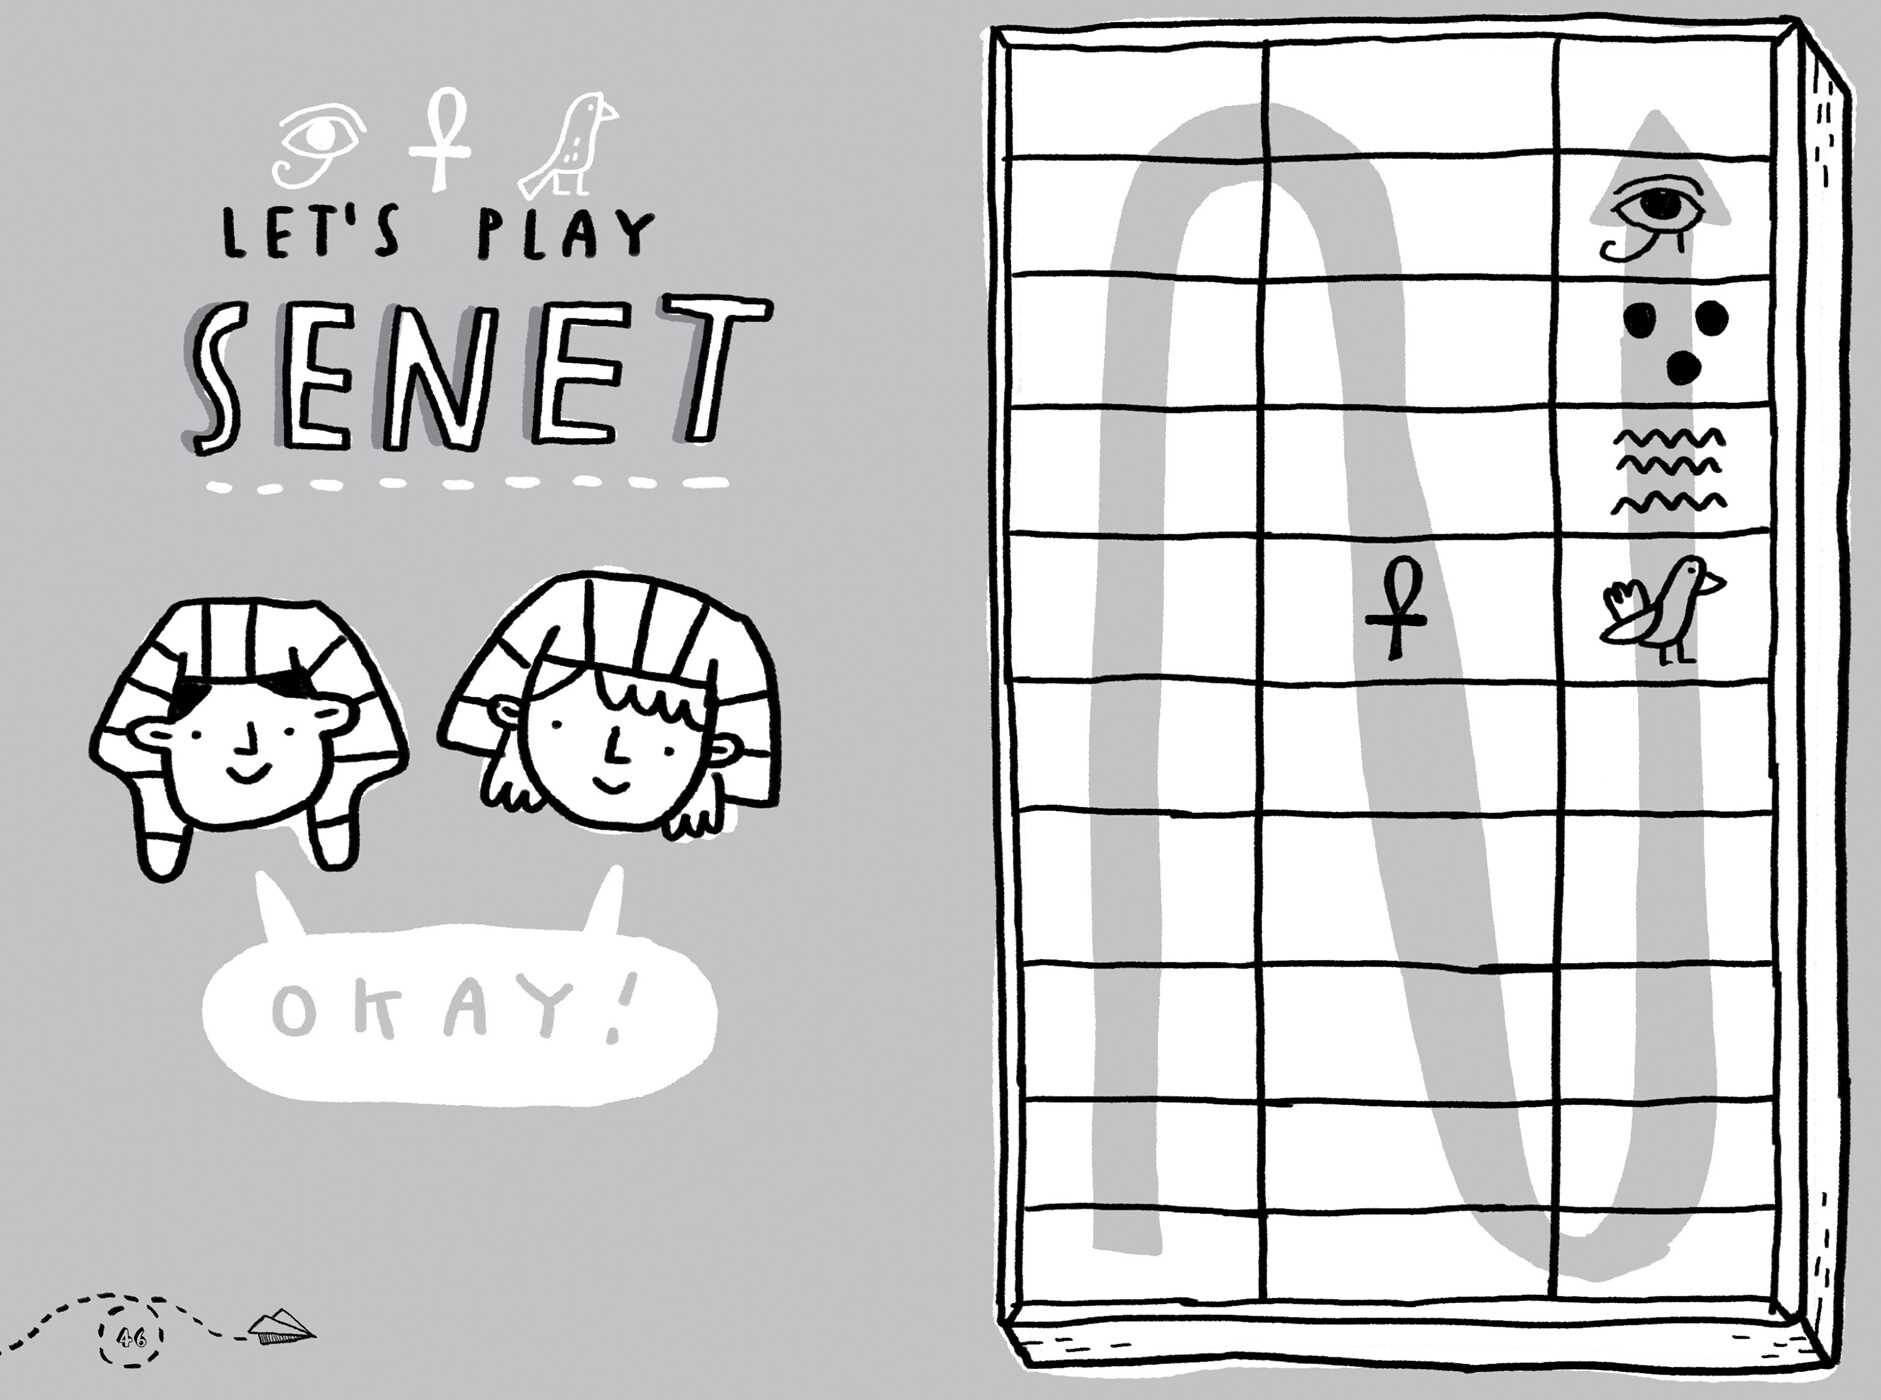 LET'S PLAY
SENET
OKAY!
46